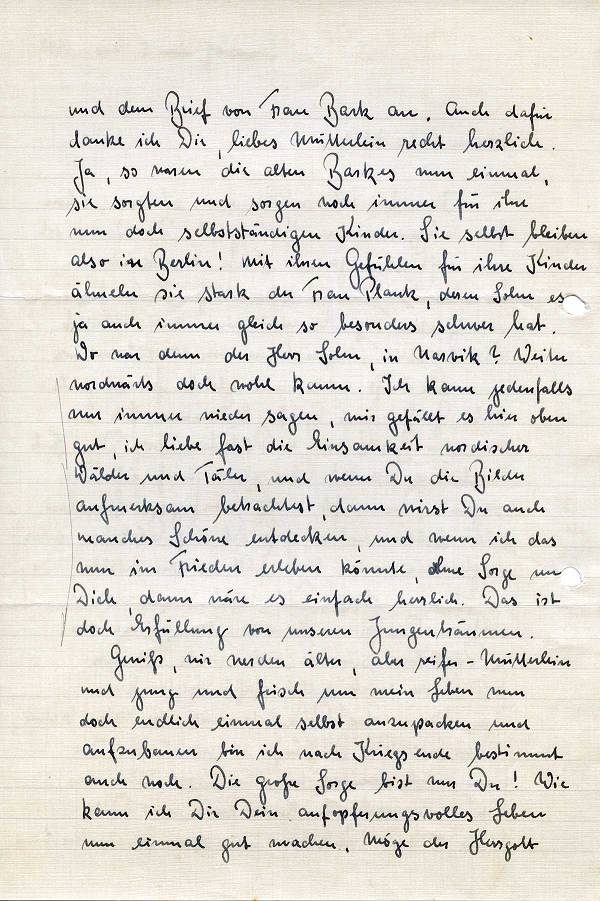 und dem Brief von Frau Bark an. Auch dafür
danke ich Dir, liebes Mütterlein recht herzlich.
Ja, so waren die alten Barkes nun einmal,
sie sorgten und sorgen noch immer für ihre
nun doch selbstständigen Kinder. Sie selbst bleiben
also in Berlin! Mit ihren Gefühlen für ihre Kinder
ähneln sie stark der Frau Plank, deren Sohn es
ja auch immer gleich so besonders schwer hat.
Wo war denn der Herr Sohn, in Narvik? Weiter
nordwärts doch wohl kaum. Ich kann jedenfalls
nur immer wieder sagen, mir gefällt es hier oben
gut, ich liebe fast die Einsamkeit nordischer
Wälder und Täler, und wenn Du die Bilder
aufmerksam betrachtest, dann wirst Du auch
manches Schöne entdecken, und wenn ich das
nun im Frieden erleben könnte, ohne Sorge um
Dich, dann wäre es einfach herrlich. Das ist
doch Erfüllung von unseren Jungenträumen.
Gewiß, wir werden älter, aber reifer - Mütterlein
und jung und frisch um mein Leben nun
doch endlich einmal selbst anzupacken und
aufzubauen bin ich nach Kriegsende bestimmt
auch noch. Die große Sorge bist nur Du! Wie
kann ich Dir Dein aufopferungsvolles Leben
nun einmal gut machen. Möge der Herrgott